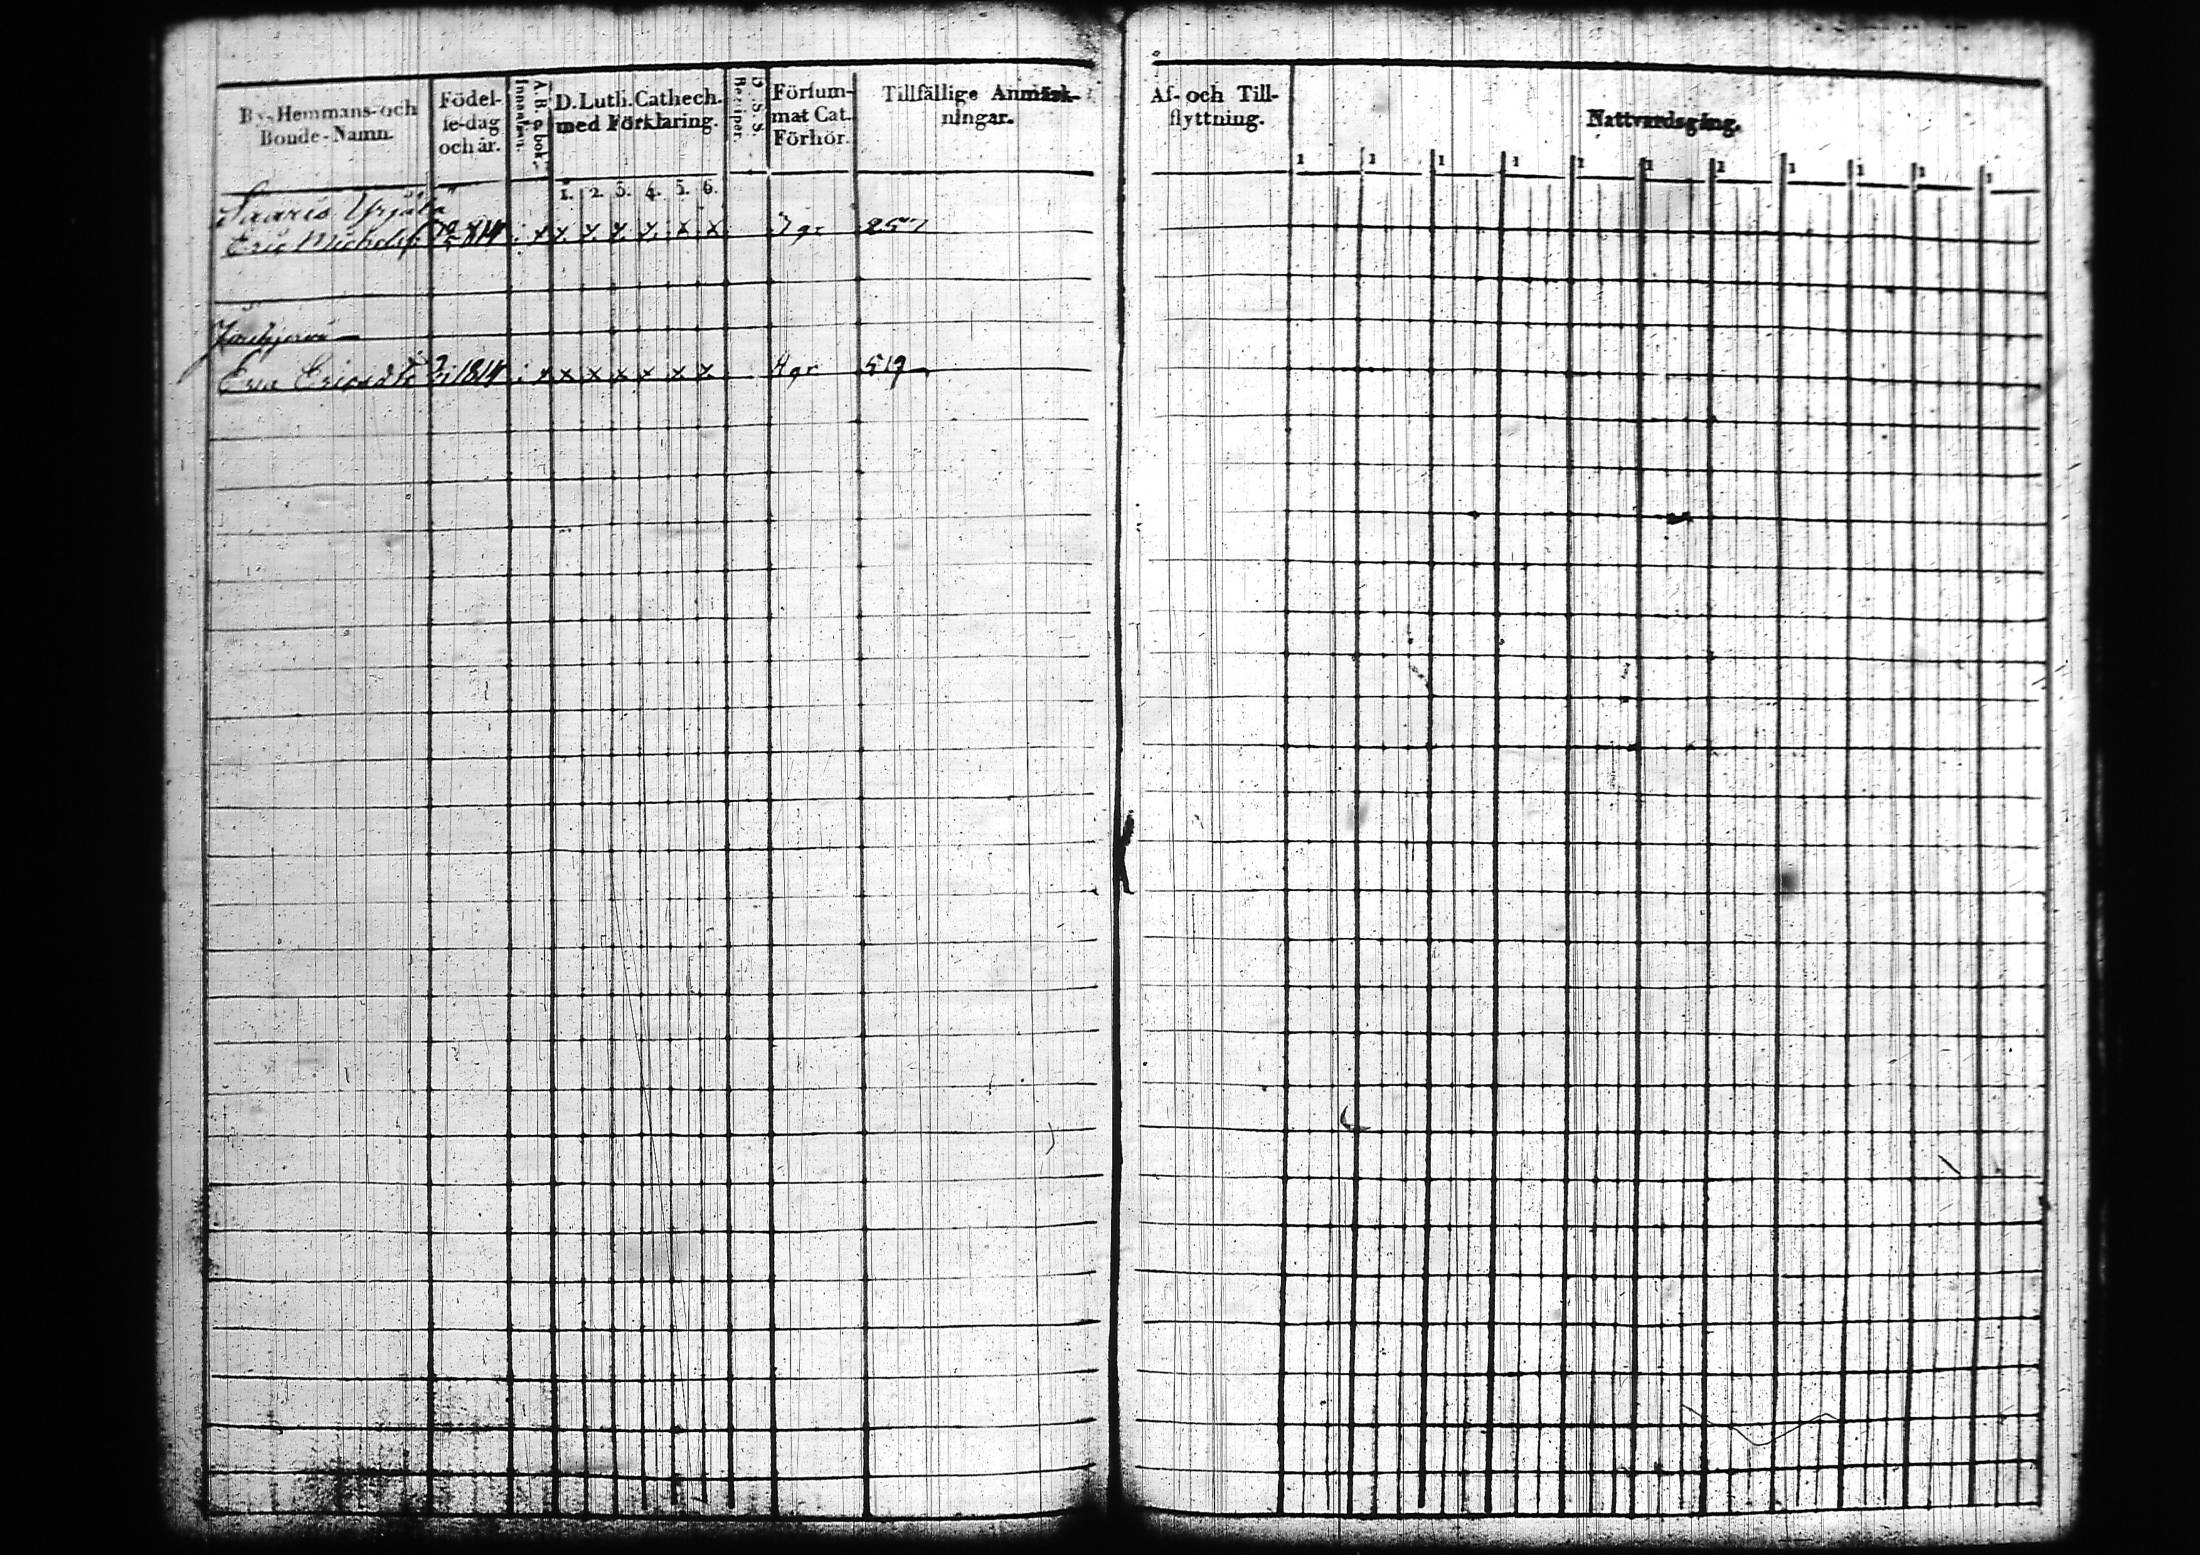 By-Hemmans-och Bonde-Namn.
Födel-
se-dag
och år.
Innantan.
A B c bok.
D. Luth. Cathech.
med Förklaring.
1. 2. 3. 4. 5. 6.
D. S. S.
Försum-
mat Cat.
Förhör.
Tillfällige Anmärk-
ningar.
Saaris
Eric Michelss 1814 x x x x x x x 7 gr 257
Eric 1814 x x x x x x x 4 gr 519
Af- och Till-
flyttning.
Nattvardsgång.
1 1 1 1 1 1 1 1 1 1 1